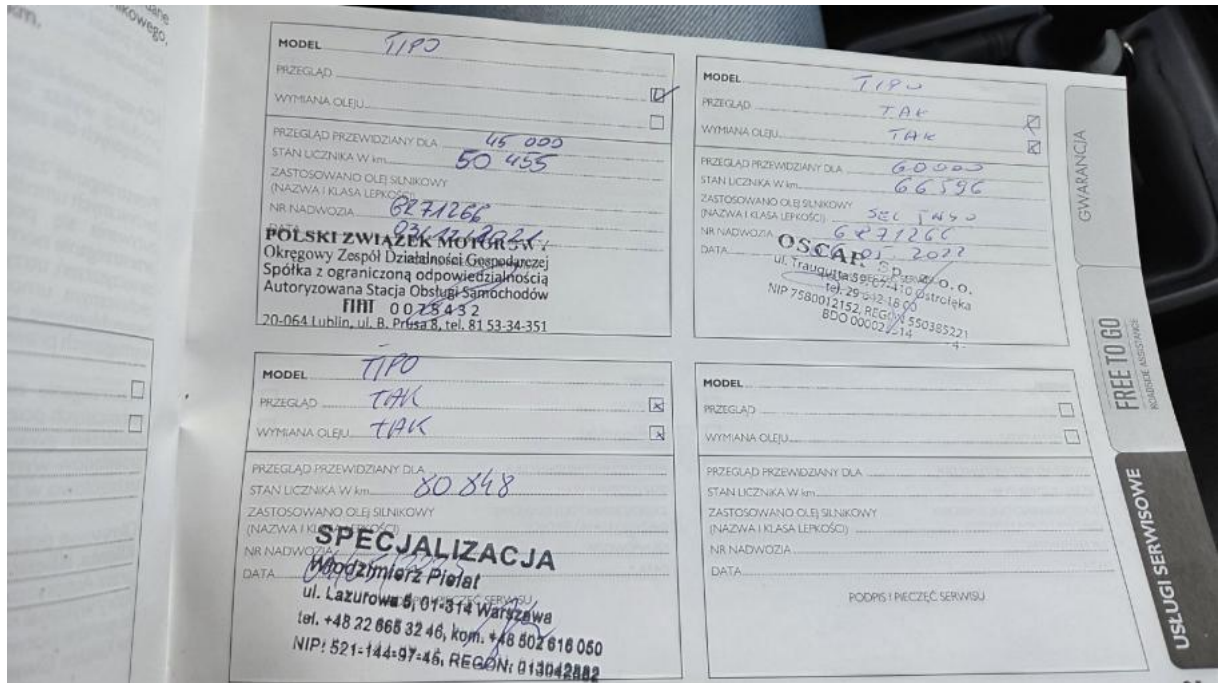 kowego,
km.
MODEL TIPO
PRZEGLĄD
WYMIANA OLEJU
PRZEGLĄD PRZEWIDZIANY DLA 45 000
STAN LICZNIKA W km 50 455
ZASTOSOWANO OLEJ SILNIKOWY
(NAZWA I KLASA LEPKOŚCI)
NR NADWOZIA 6R71266
DATA 2021
POLSKI ZWIĄZEK MOTOROWY
Okręgowy Zespół Działalności Gospodarczej
Spółka z ograniczoną odpowiedzialnością
Autoryzowana Stacja Obsługi Samochodów
FIAT 0078432
20-064 Lublin, ul. B. Prusa 8, tel. 81 53-34-351
MODEL TIPO
PRZEGLĄD TAK
WYMIANA OLEJU TAK
PRZEGLĄD PRZEWIDZIANY DLA 60000
STAN LICZNIKA W km 66596
ZASTOSOWANO OLEJ SILNIKOWY
(NAZWA I KLASA LEPKOŚCI) SEL
NR NADWOZIA 6R71266
DATA 05. 2022
OSCAR Sp. z o.o.
ul. Traugutta 59, 07-410 Ostrołęka
tel. 29
NIP 7580012152, REGON 550385221
BDO
-4-
MODEL TIPO
PRZEGLĄD TAK
WYMIANA OLEJU TAK
PRZEGLĄD PRZEWIDZIANY DLA
STAN LICZNIKA W km 80 848
ZASTOSOWANO OLEJ SILNIKOWY
(NAZWA I KLASA LEPKOŚCI)
NR NADWOZIA
DATA
SPECJALIZACJA
Włodzimierz Pielat
ul. Lazurowa 5, 01-314 Warszawa
tel. +48 22 665 32 46, kom. +48 502 616 050
NIP: 521-144-97-45, REGON: 013042882
MODEL
PRZEGLĄD
WYMIANA OLEJU
PRZEGLĄD PRZEWIDZIANY DLA
STAN LICZNIKA W km
ZASTOSOWANO OLEJ SILNIKOWY
(NAZWA I KLASA LEPKOŚCI)
NR NADWOZIA
DATA
PODPIS I PIECZĘĆ SERWISU
GWARANCJA
FREE TO GO
ROADSIDE ASSISTANCE
USŁUGI SERWISOWE